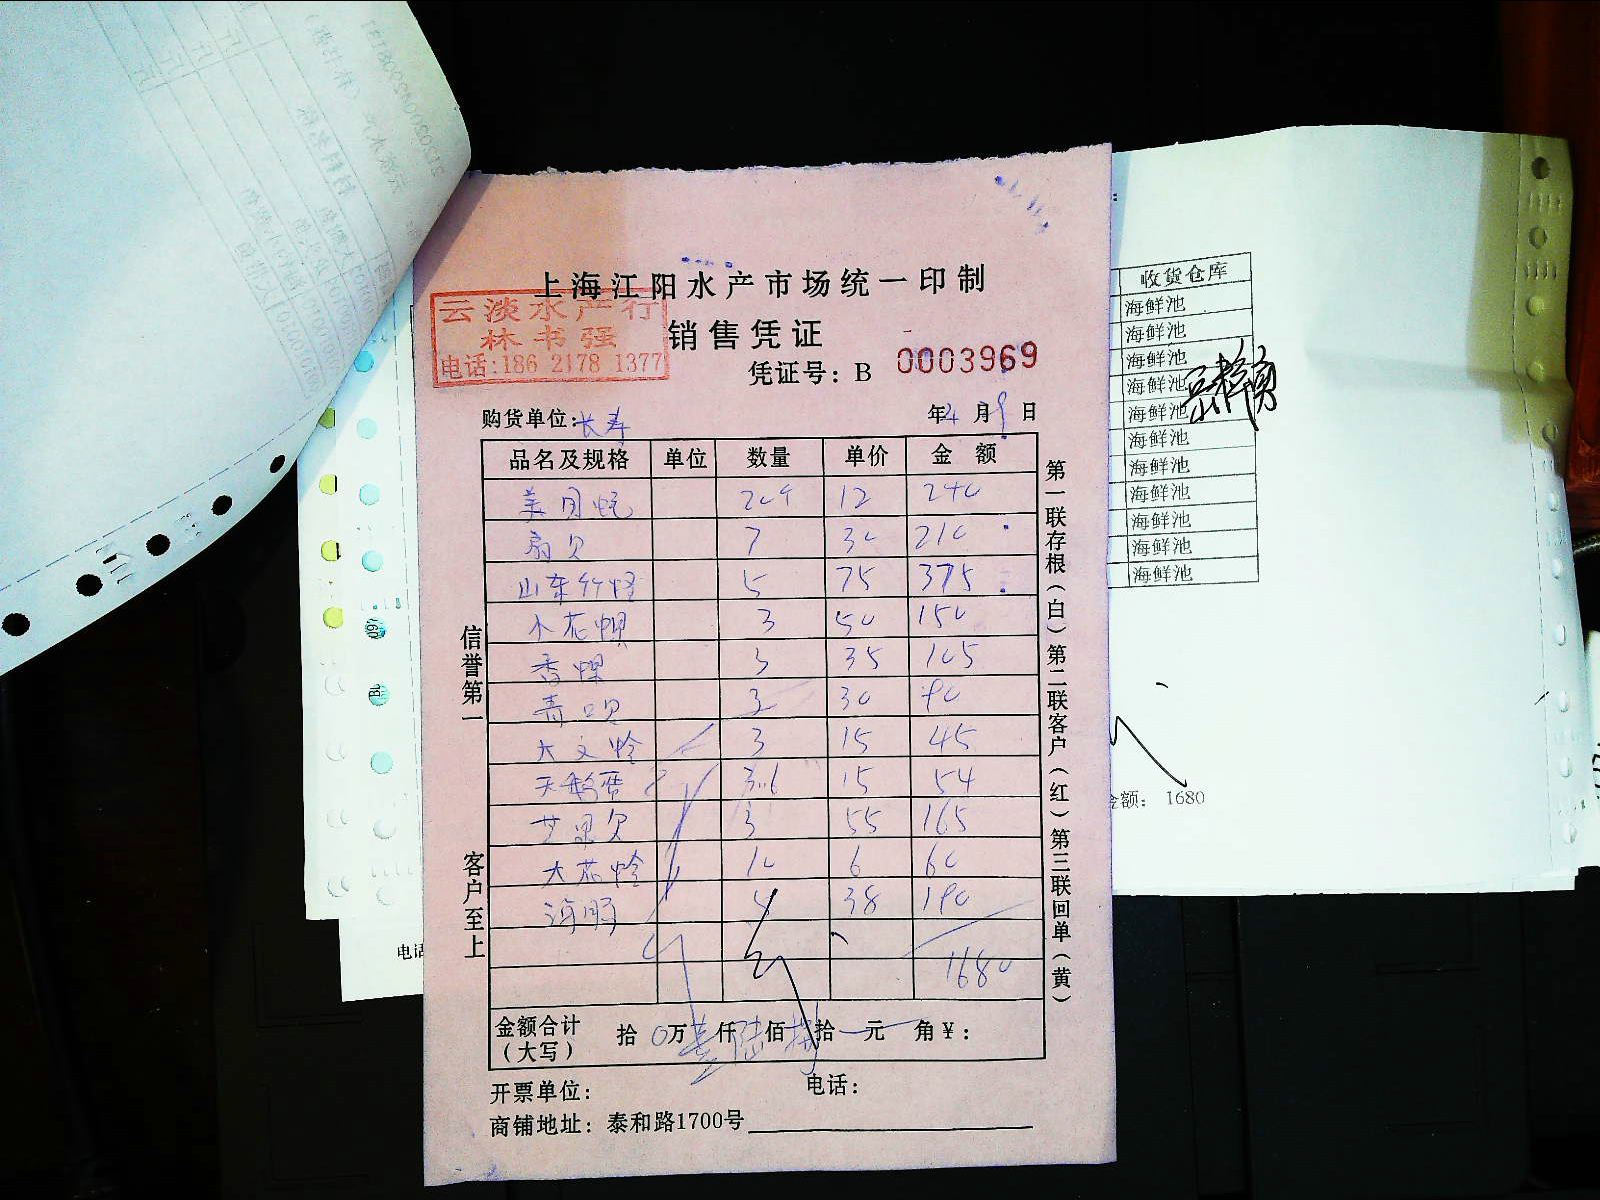 上海江阳水产市场统一印制
云淡水产行
林书强
电话:186 2178 1377
销售凭证
凭证号: B 0003969
购货单位: 长寿 年 4 月 9 日
品名及规格 单位 数量 单价 金额
12 240
扇贝 7 30 210
山东竹蛏 5 75 375
小花 3 50 150
香螺 3 35 105
青口贝 3 30 90
大文蛤 3 15 45
天鹅蛋 3.6 15 54
芒果贝 3 55 165
大花蛤 10 6 60
海肠 38 190
1680
金额合计
(大写)
拾 0万 壹仟 陆佰 捌拾 元 角 ¥:
开票单位: 电话:
商铺地址: 泰和路1700号
信誉第一
客户至上
第一联存根(白)第二联客户(红)第三联回单(黄)
收货仓库
海鲜池
海鲜池
海鲜池
海鲜池
海鲜池
海鲜池
海鲜池
海鲜池
海鲜池
海鲜池
海鲜池
金额: 1680
电话